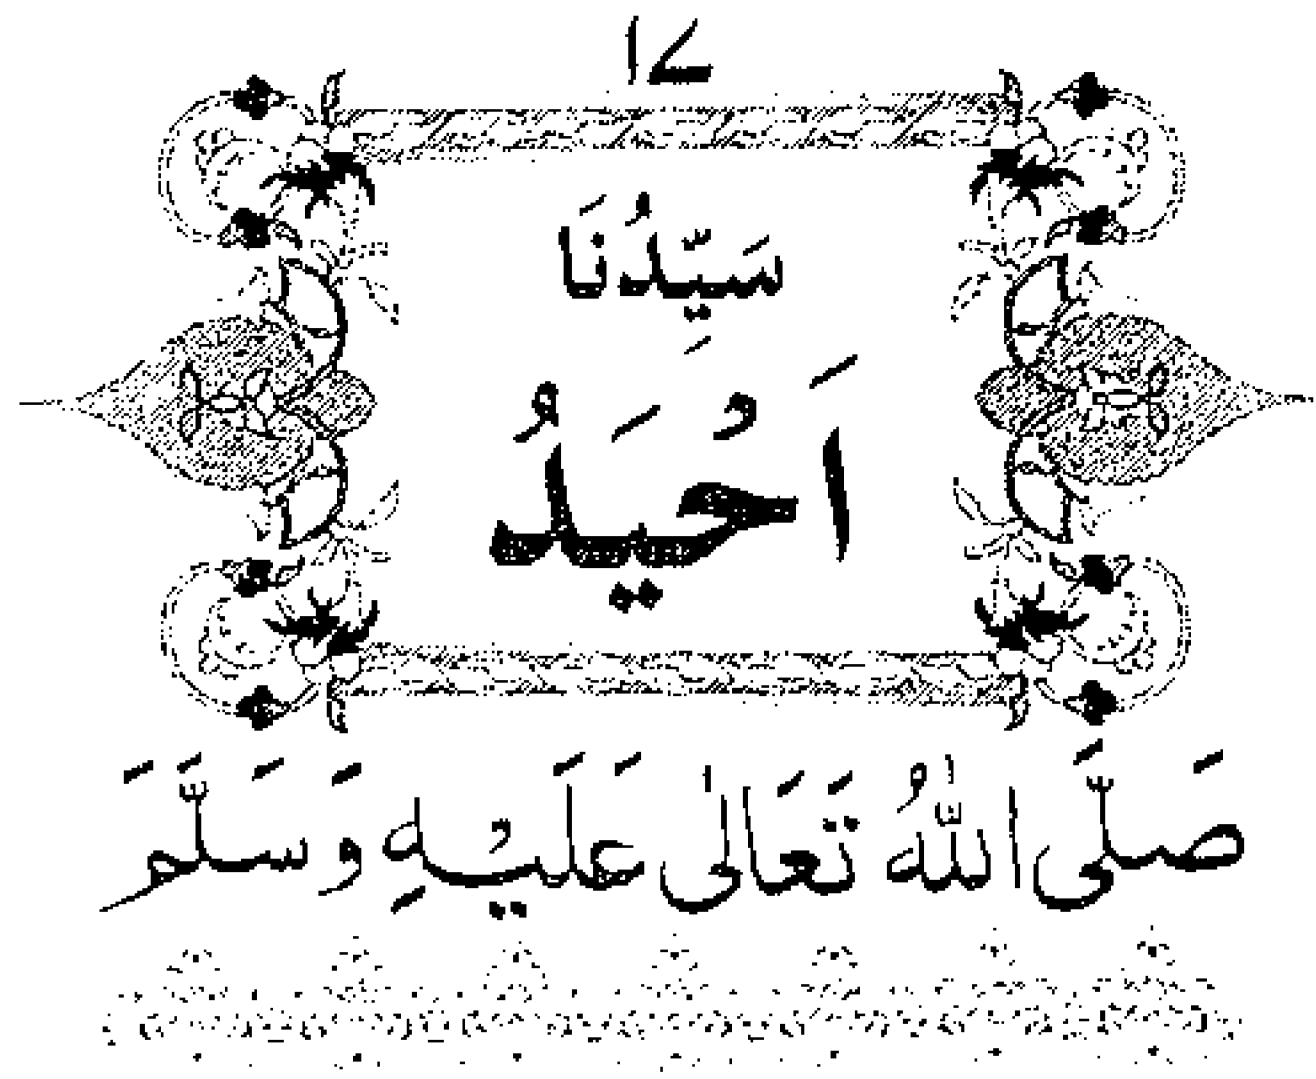 ۱۷
سَيِّدُنَا
اَحْيَدُ
صَلَّى اللّٰهُ تَعَالىٰ عَلَيْهِ وَسَلَّمَ